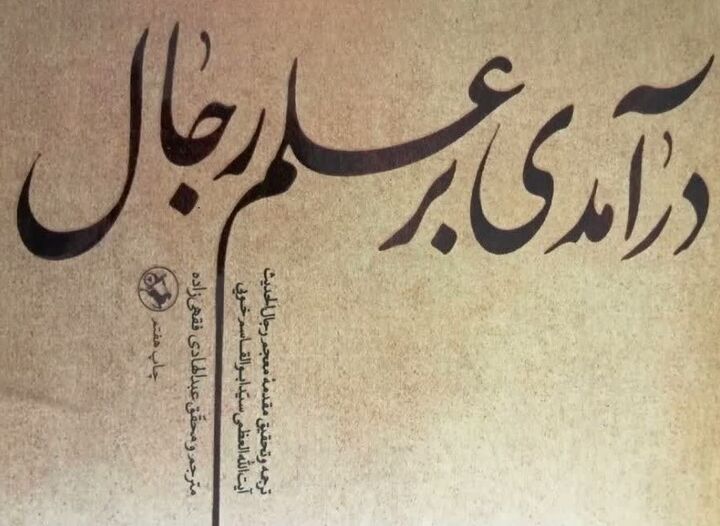 درآمدی بر علم رجال
ترجمه و تحقیق مقدمهٔ معجم رجال الحدیث
آیت‌الله العظمی سیّد ابوالقاسم خویی
مترجم و محقّق عبدالهادی فقهی‌زاده
چاپ هفتم